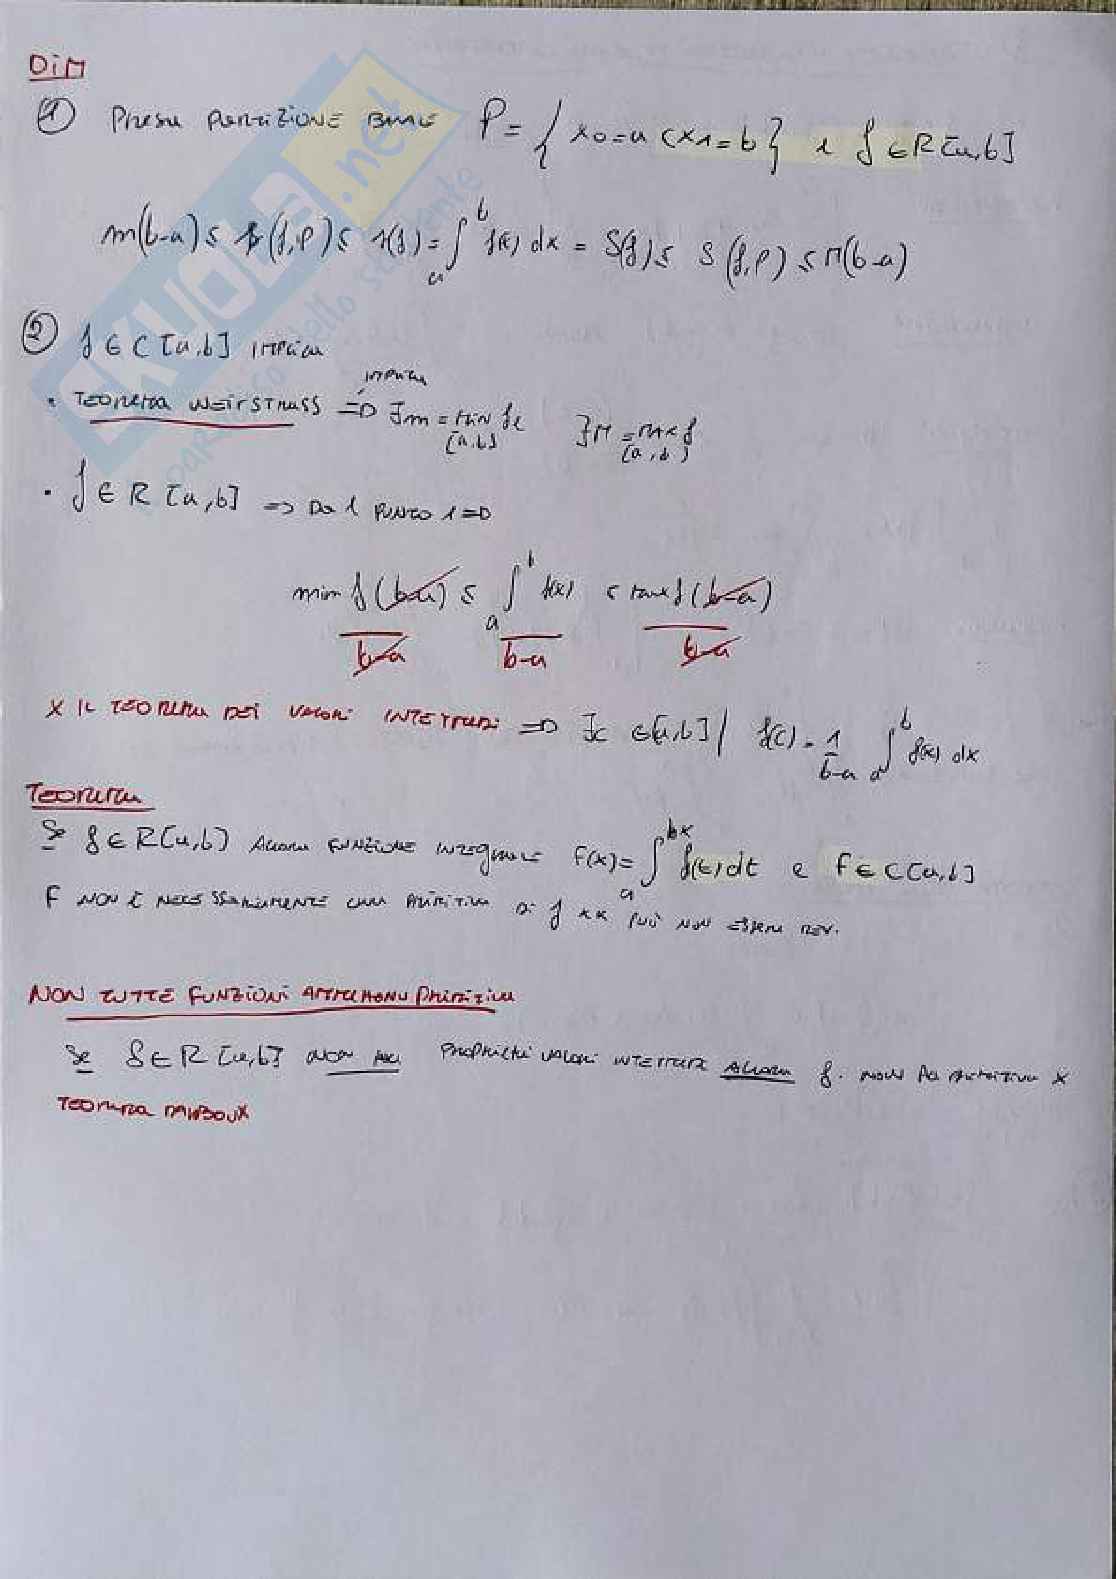 DIM
① Presa partizione banale P = { x0 = a < x1 = b } e f ∈ R[a,b]
m(b-a) ≤ s(f,P) ≤ s(f) = ∫_a^b f(x) dx = S(f) ≤ S(f,P) ≤ M(b-a)
② f ∈ C[a,b] implica
implica
• TEOREMA WEIRSTRASS => ∃m = min f ∃M = max f
[a,b] [a,b]
• f ∈ R [a,b] => Dal punto 1 =>
min f (b-a) ≤ ∫_a^b f(x) ≤ max f (b-a)
b-a b-a b-a
X IL TEOREMA DEI VALORI INTERMEDI => ∃c ∈ [a,b] / f(c) = 1/(b-a) ∫_a^b f(x) dx
TEOREMA
Se f ∈ R[a,b] allora FUNZIONE INTEGRALE F(x) = ∫_a^x f(t) dt e F ∈ C[a,b]
F NON È NECESSARIAMENTE PRIMITIVA DI f XK PUÒ NON ESSERE
NON TUTTE FUNZIONI AMMETTONO PRIMITIVA
Se f ∈ R [a,b] non ha PROPRIETÀ VALORI INTERMEDI ALLORA f NON HA PRIMITIVA X
TEOREMA DARBOUX
SKUOLA.net